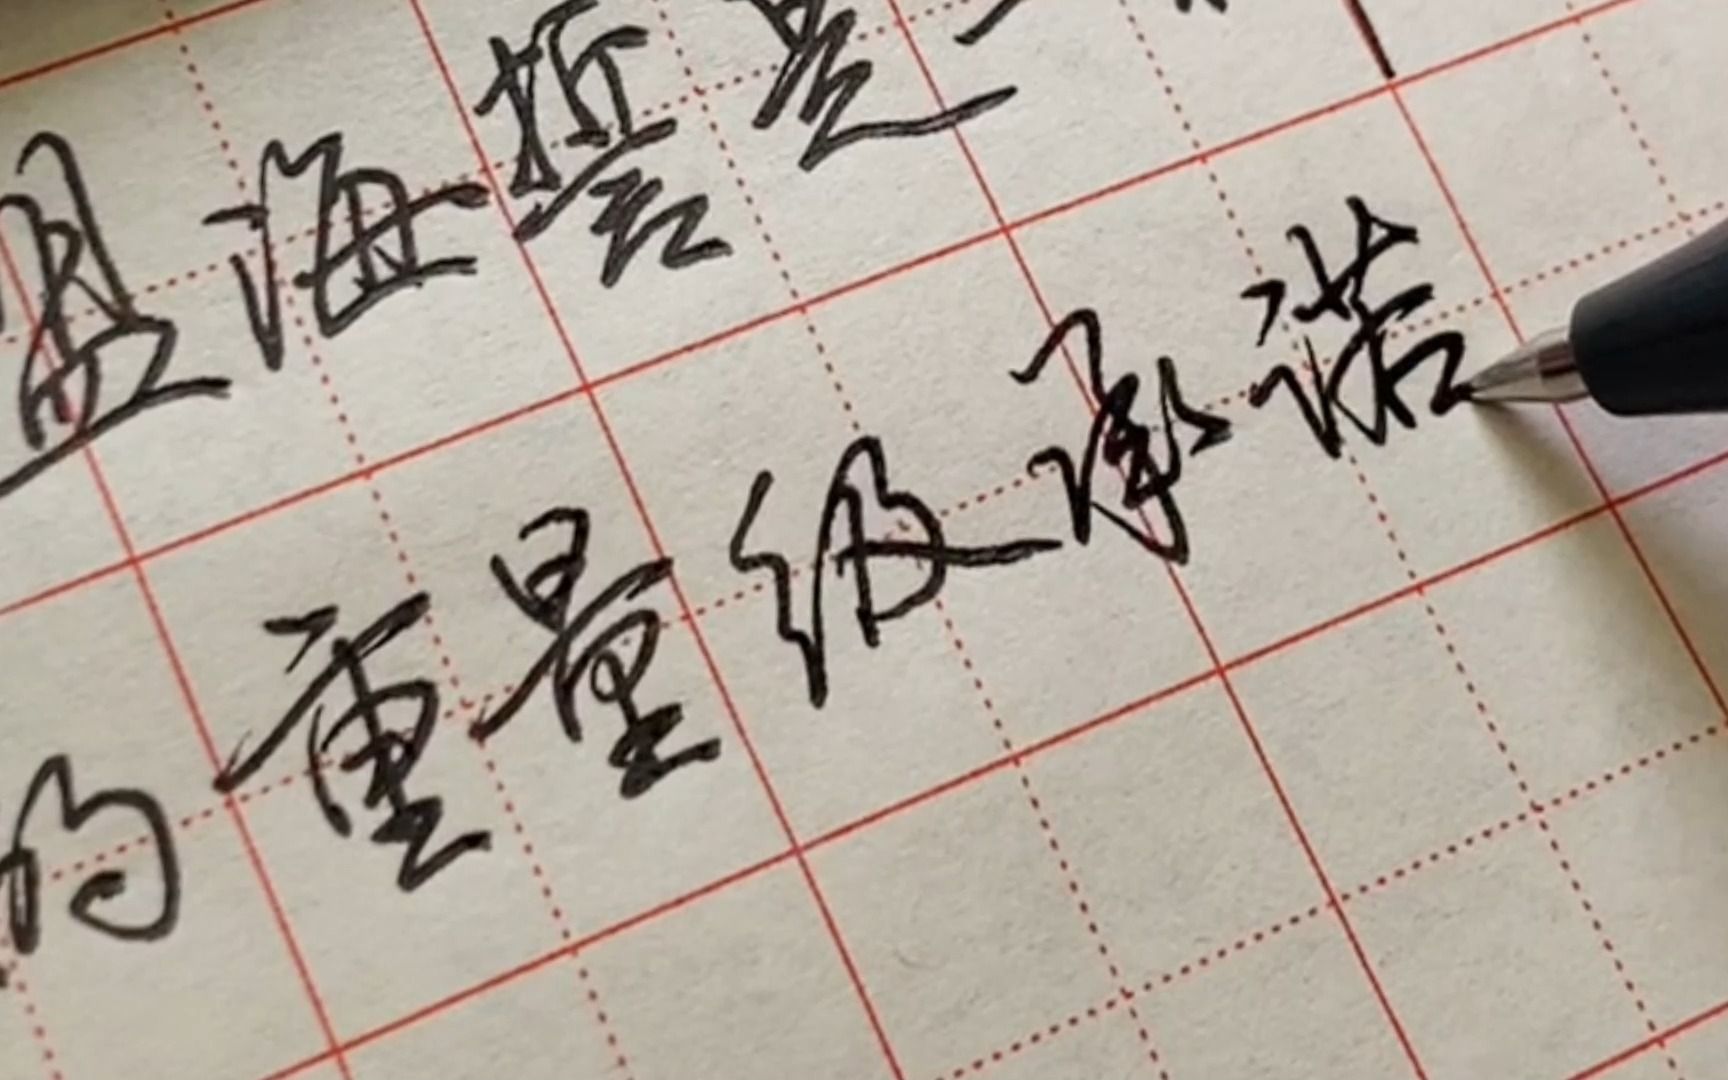 盟海誓是
的重量级承诺